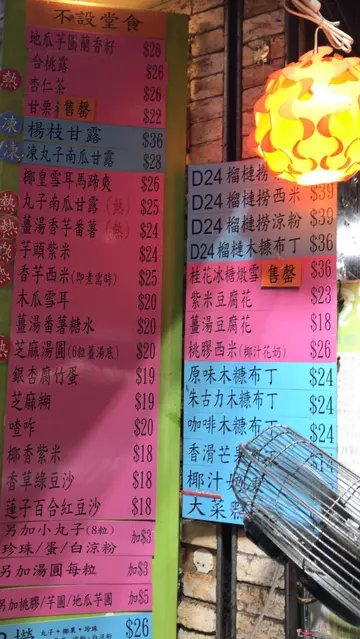 不設堂食
地瓜芋圓蘭香籽 $26
合桃露 $26
杏仁茶 $26
甘栗 售罄 $22
熱
凍 楊枝甘露 $36
凍 凍丸子南瓜甘露 $28
椰皇雪耳馬蹄爽 $26
熱 丸子南瓜甘露(熱) $25
熱 薑湯香芋番薯(熱) $24
熱 芋頭紫米 $24
香芋西米(即煮需時) $25
木瓜雪耳 $20
薑湯番薯糖水 $20
熱 芝麻湯圓(6粒薑湯底) $20
銀杏腐竹蛋 $19
芝麻糊 $19
喳咋 $20
椰香紫米 $18
香草綠豆沙 $18
蓮子百合紅豆沙 $18
另加小丸子(8粒) 加$3
珍珠/蛋/白涼粉
另加湯圓每粒 加$3
另加桃膠/芋圓/地瓜圓 加$5
丸子+椰果+珍珠 $26
D24榴槤撈
D24榴槤撈西米 $39
D24榴槤撈涼粉 $39
D24榴槤木糠布丁 $36
桂花冰糖燉雪 售罄 $36
紫米豆腐花 $23
薑湯豆腐花 $18
桃膠西米(椰汁花奶) $26
原味木糠布丁 $24
朱古力木糠布丁 $24
咖啡木糠布丁 $24
香滑芒果
椰汁
大菜